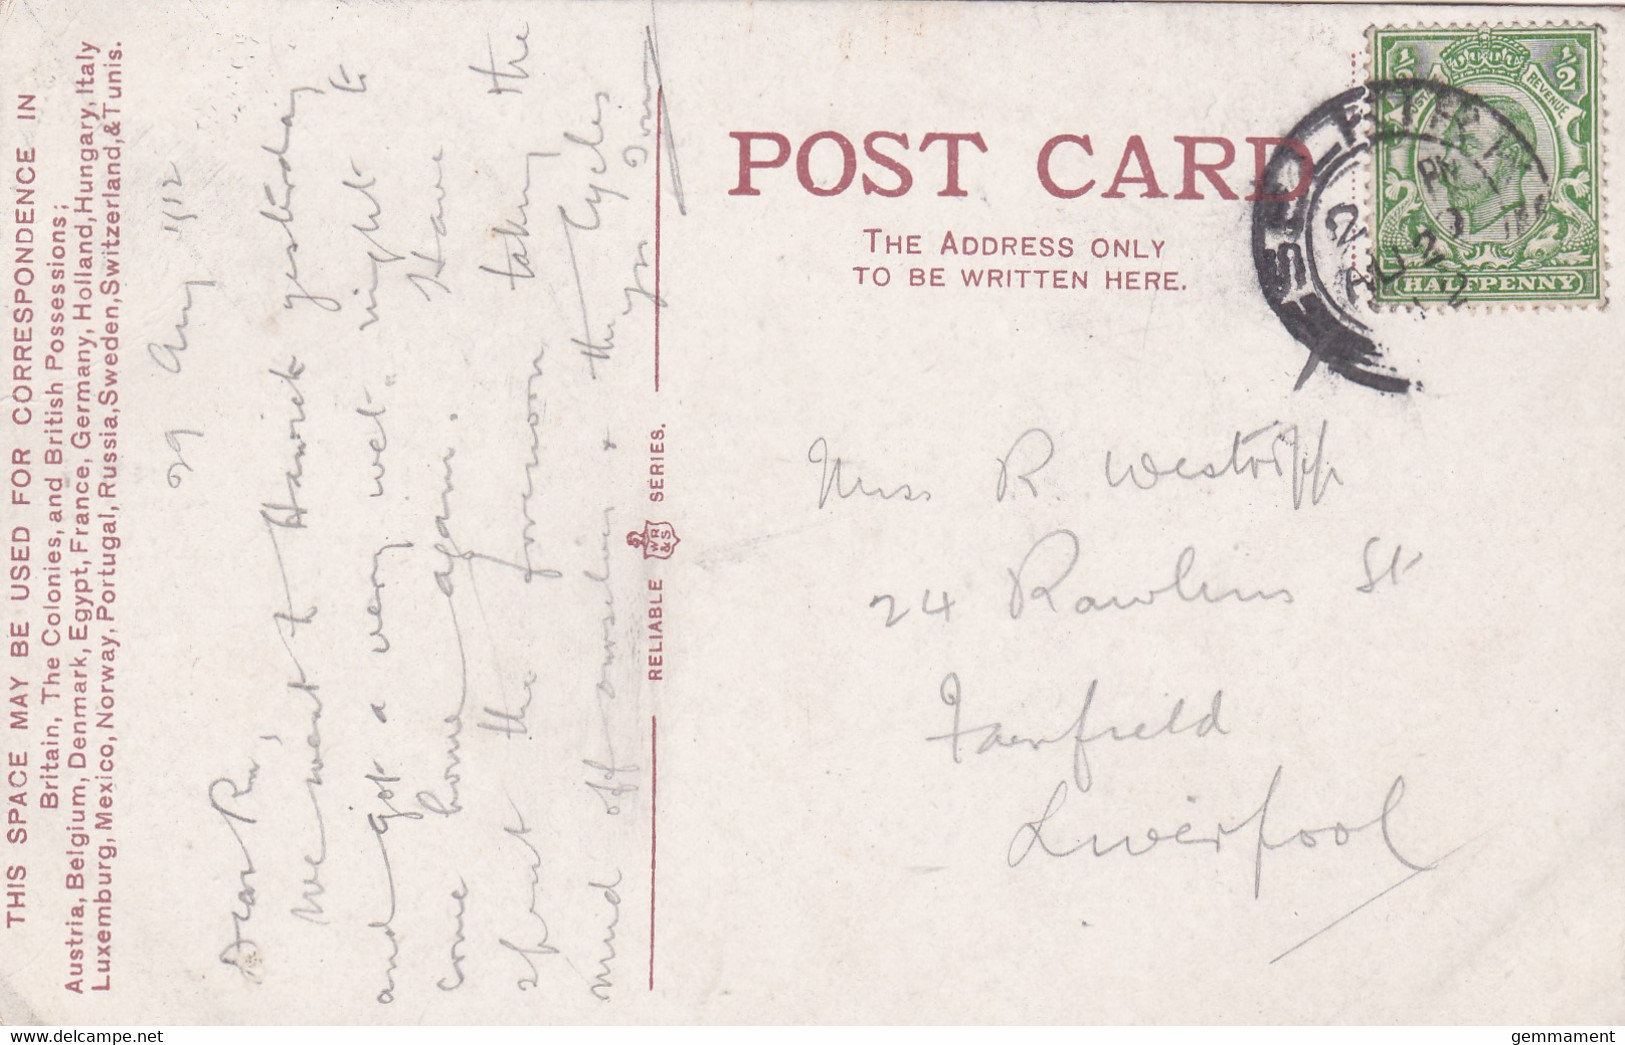 THIS SPACE MAY BE USED FOR CORRESPONDENCE IN
Britain, The Colonies, and British Possessions;
Austria, Belgium, Denmark, Egypt, France, Germany, Holland, Hungary, Italy
Luxemburg, Mexico, Norway, Portugal, Russia, Sweden, Switzerland, & Tunis.
29 Aug 1912
Dear
We went to Hawick yesterday
and got a very wet night to
come home again. Have
spent the forenoon taking the
mud off ourselves + the Cycles
RELIABLE WR&S SERIES.
POST CARD
THE ADDRESS ONLY
TO BE WRITTEN HERE.
½ ½
REVENUE
HALFPENNY
Miss R. Westripp
24 Rawlins St
Fairfield
Liverpool
delcampe.net
gemmament